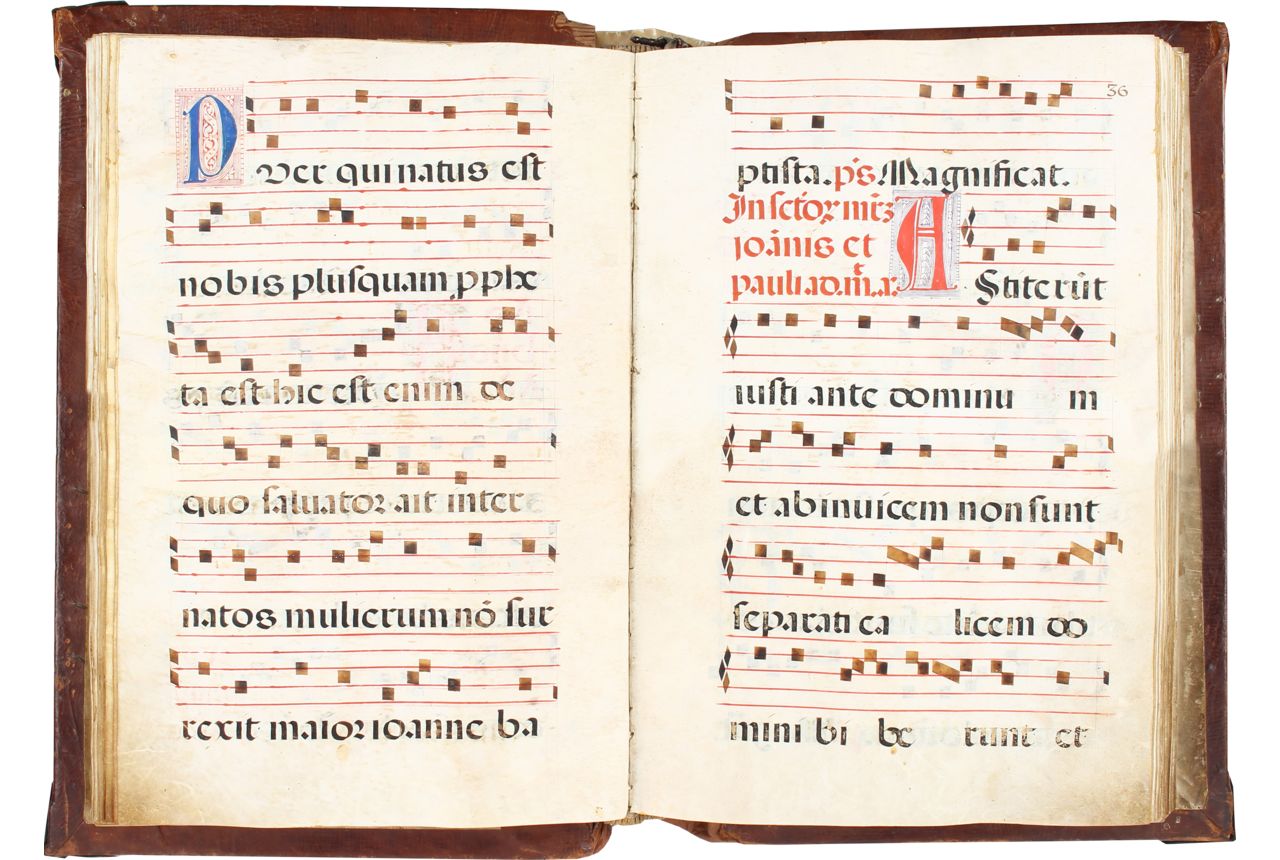 Puer qui natus est
nobis plusquam pphe
ta est hic est enim de
quo saluator ait inter
natos mulierum nō sur
rexit maior ioanne ba
36
ptista. ps. Magnificat.
In sctōꝝ mīꝝ
ioānis et
pauli. ad. m̄a. Astiterūt
iusti ante dominu m
et ab inuicem non sunt
separati ca licem do
mini bi be runt et